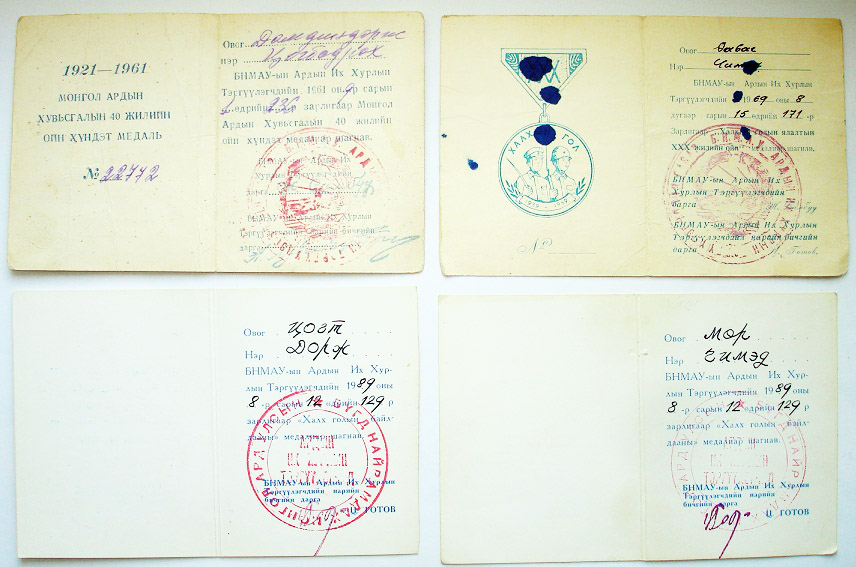 1921—1961
МОНГОЛ АРДЫН
ХУВЬСГАЛЫН 40 ЖИЛИЙН
ОЙН ХҮНДЭТ МЕДАЛЬ
№ 22772
Овог
нэр
БНМАУ-ын Ардын Их Хурлын
Тэргүүлэгчдийн 1961 оны сарын
өдрийн зарлигаар Монгол
Ардын Хувьсгалын 40 жилийн
ойн хүндэт медалиар шагнав.
БНМАУ-ын Ардын Их
Хурлын Тэргүүлэгчдийн
дарга
БНМАУ-ын Ардын Их Хурлын
Тэргүүлэгчдийн нарийн бичгийн
дарга
XXX
ХАЛХ ГОЛ
№
Овог
Нэр
БНМАУ-ын Ардын Их Хурлын
Тэргүүлэгчдийн 1969 оны 8
дугаар сарын 15 өдрийн 171-р
Зарлигаар Халх голын ялалтын
XXX жилийн ойн медалиар шагнав.
БНМАУ-ын Ардын Их
Хурлын Тэргүүлэгчдийн
дарга
БНМАУ-ын Ардын Их Хурлын
Тэргүүлэгчдийн нарийн бичгийн
дарга Ц. Готов.
Овог ЦОГТ
Нэр ДОРЖ
БНМАУ-ын Ардын Их Хур-
лын Тэргүүлэгчдийн 1989 оны
8-р сарын 12 өдрийн 129 р
зарлигаар «Халх голын байл-
дааны» медалиар шагнав.
БНМАУ-ын Ардын Их Хурлын
Тэргүүлэгчдийн нарийн
бичгийн дарга
Ц ГОТОВ
Овог МӨР
Нэр ЧИМЭД
БНМАУ-ын Ардын Их Хур-
лын Тэргүүлэгчдийн 1989 оны
8-р сарын 12 өдрийн 129 р
зарлигаар «Халх голын байл-
дааны» медалиар шагнав.
БНМАУ-ын Ардын Их Хурлын
Тэргүүлэгчдийн нарийн
бичгийн дарга
Ц ГОТОВ